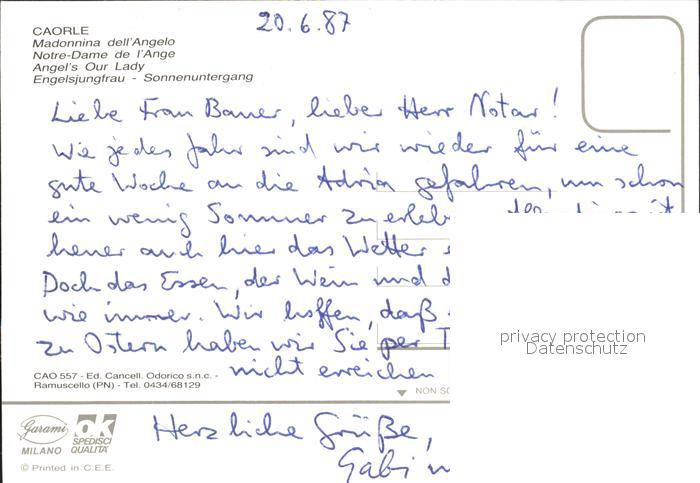 20.6.87
CAORLE
Madonnina dell'Angelo
Notre-Dame de l'Ange
Angel's Our Lady
Engelsjungfrau - Sonnenuntergang
Liebe Frau Bauer, lieber Herr Notar!
Wie jedes Jahr sind wir wieder für eine
gute Woche an die Adria gefahren, um schon
ein wenig Sommer zu erleb
heuer auch hier das Wetter
Doch das Essen, der Wein und d
wie immer. Wir hoffen, daß
zu Ostern haben wir Sie per T
nicht erreichen
privacy protection
Datenschutz
CAO 557 - Ed. Cancell. Odorico s.n.c. -
Ramuscello (PN) - Tel. 0434/68129
NON SC
Herzliche Grüße,
Gabi u
Garami
MILANO
ok
SPEDISCI
QUALITA'
© Printed in C.E.E.